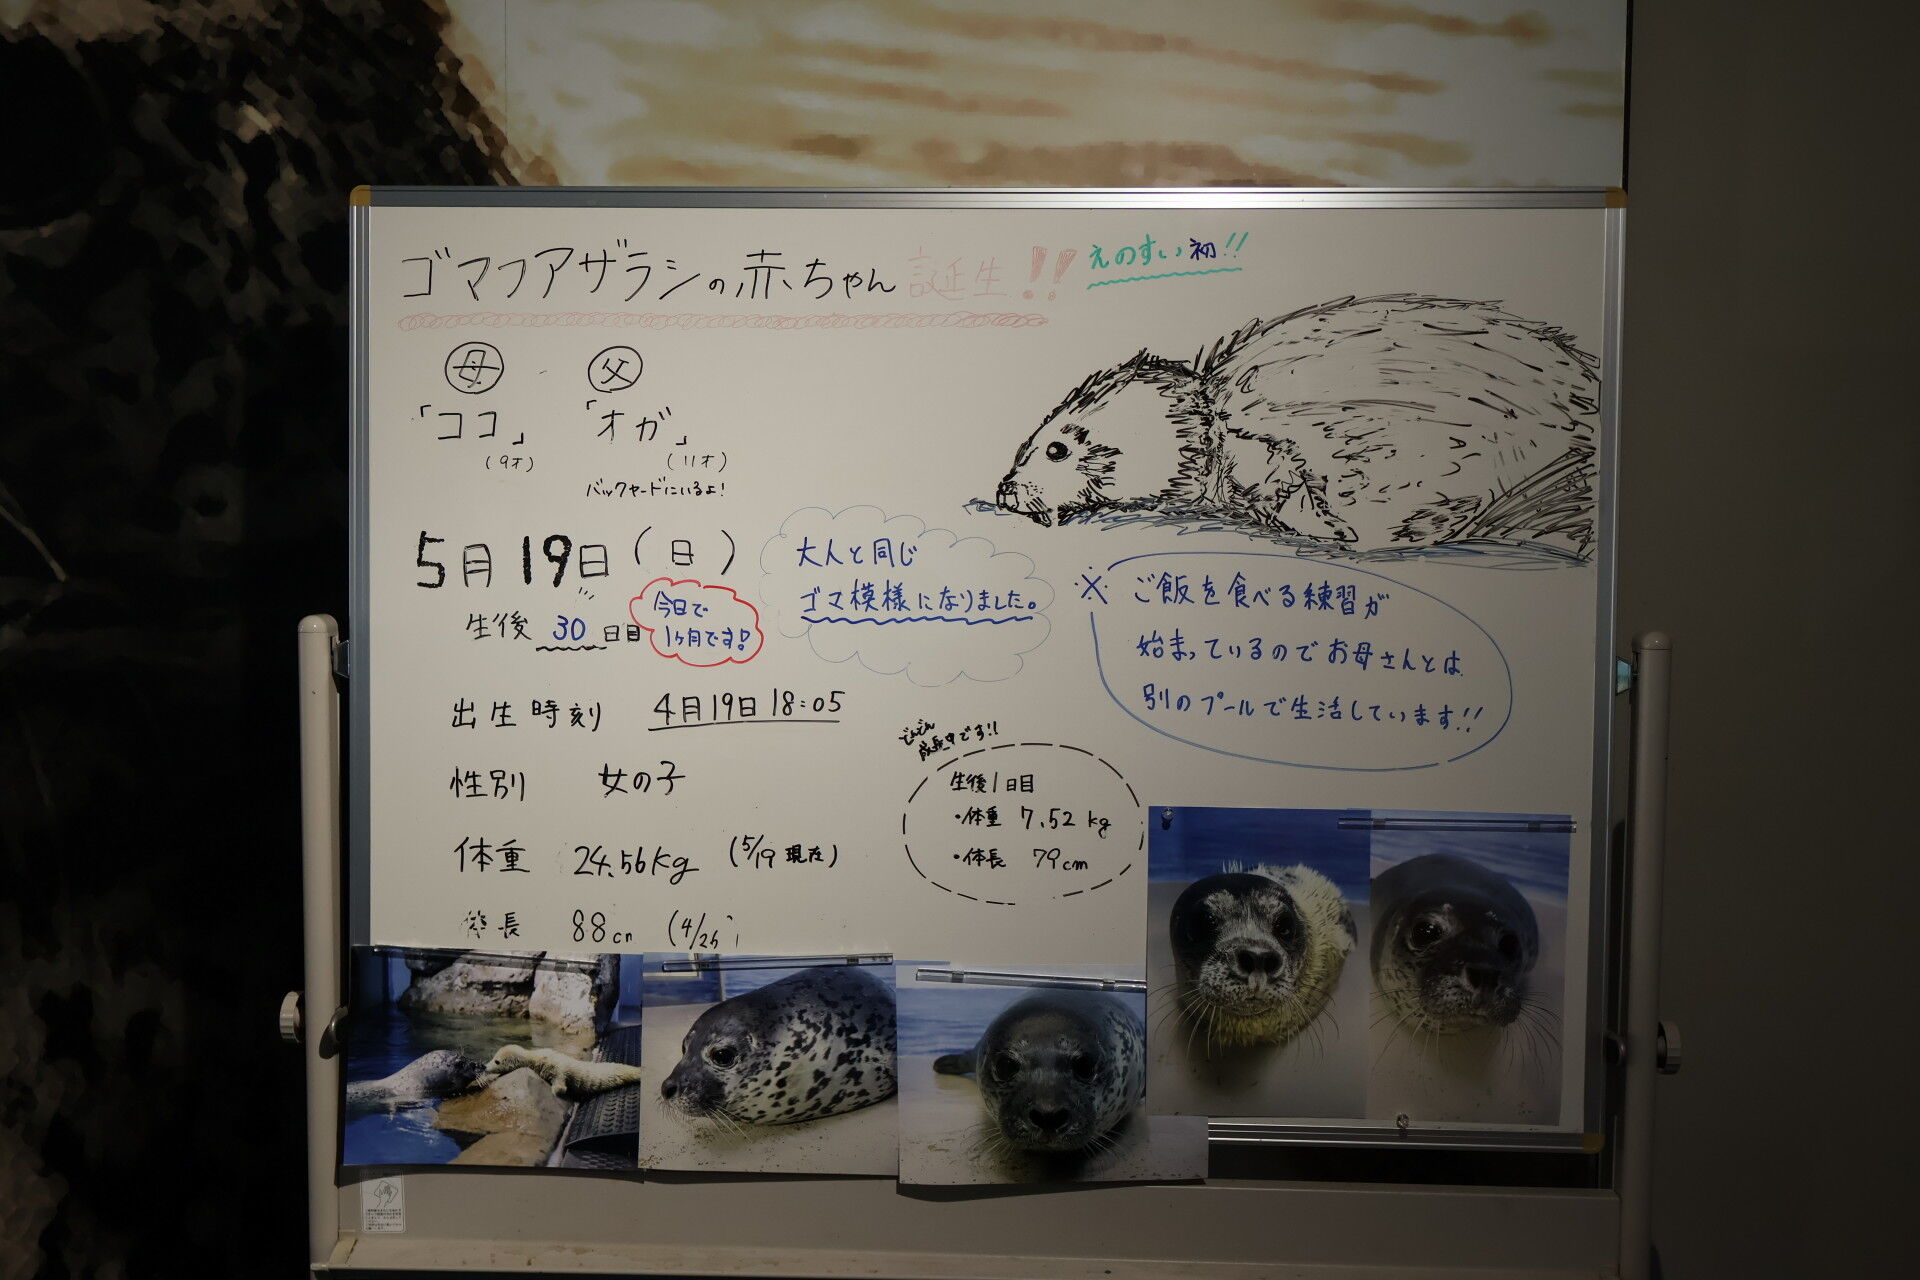 ゴマフアザラシの赤ちゃん誕生!! えのすい初!!
母 父
「ココ」 「オガ」
(9才) (11才)
バックヤードにいるよ!
5月19日(日)
生後 30 日目
今日で
1ヶ月です!
大人と同じ
ゴマ模様になりました。
※ ご飯を食べる練習が
始まっているのでお母さんとは
別のプールで生活しています!!
出生時刻 4月19日 18:05
性別 女の子
体重 24.56kg (5/19 現在)
体長 88cm
成長中です!!
生後1日目
・体重 7.52 kg
・体長 79cm